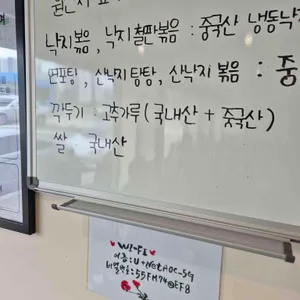 원산지 표
낙지볶음, 낙지철판볶음 : 중국산 냉동낙
연포탕, 산낙지 탕탕, 산낙지 볶음 : 중
깍두기 : 고추가루(국내산 + 중국산)
쌀 : 국내산
WI-FI
이름 : U+Net
비밀번호 :